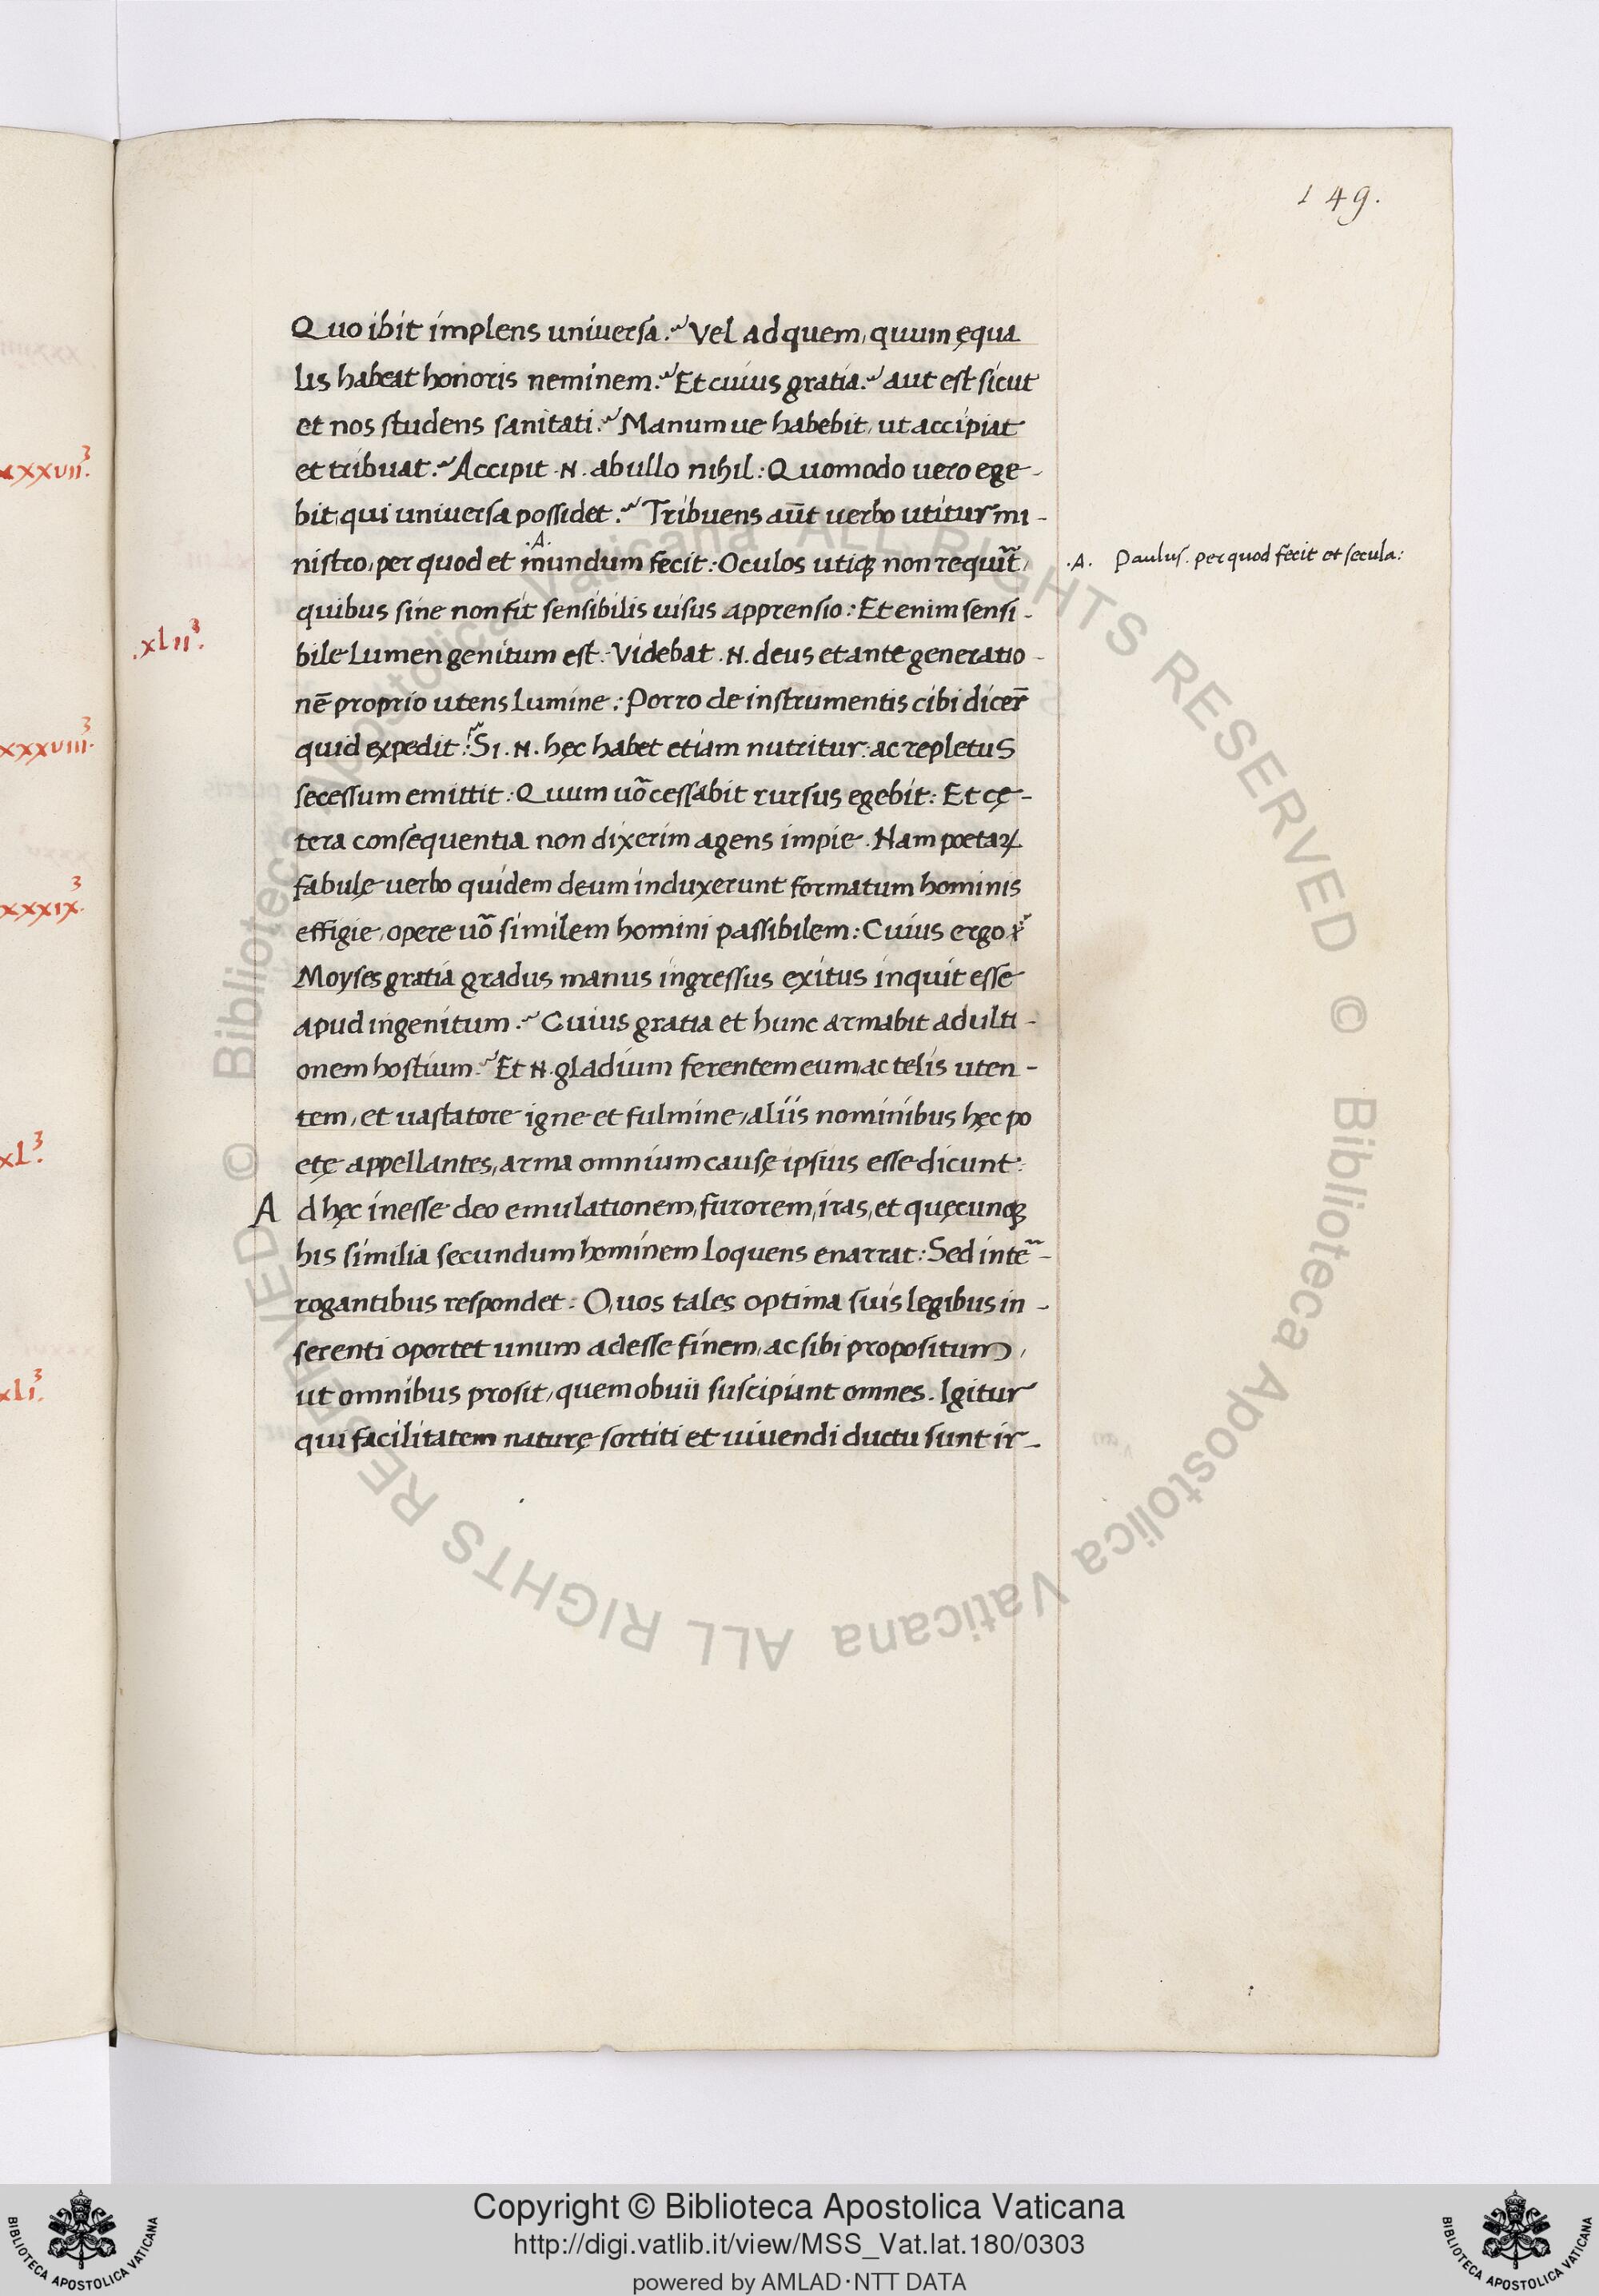 149.
Quo ibit implens universa? Vel ad quem, quum ęqua
lis habeat honoris neminem? Et cuius gratia? aut est sicut
et nos studens sanitati? Manum ue habebit, ut accipiat
et tribuat? Accipit .N. ab ullo nihil: Quomodo uero ege-
bit, qui universa possidet? Tribuens aūt uerbo utitur mi-
nistro, per quod et .A. mundum fecit: Oculos utiqꝫ non requir̃t,
.A. Paulus. per quod fecit et secula:
quibus sine non fit sensibilis uisus apprensio: Et enim sensi-
.xlii³.
bile lumen genitum est. Videbat .N. deus et ante generatio-
nē proprio utens lumine: Porro de instrumentis cibi dicer̄
quid expedit? Si .N. hęc habet etiam nutritur: ac repletus
secessum emittit: Quum uō cessabit rursus egebit: Et cę-
tera consequentia non dixerim agens impie. Nam poetaꝝ
fabulę uerbo quidem deum induxerunt formatum hominis
effigie, opere uō similem homini passibilem: Cuius ergo
Moyses gratia gradus manus ingressus exitus inquit esse
apud ingenitum? Cuius gratia et hunc armabit ad ulti-
onem hostium? Et .N. gladium ferentem eum, ac telis uten-
tem, et uastatore igne et fulmine, aliis nominibus hęc po
etę appellantes, arma omnium causę ipsius esse dicunt:
Ad hęc inesse deo emulationem, furorem, iras, et quęcunqꝫ
his similia secundum hominem loquens enarrat: Sed inte͂-
rogantibus respondet: Quos tales optima suis legibus in-
serenti oportet unum adesse finem, ac sibi propositum,
ut omnibus prosit, quem obuii suscipiant omnes. Igitur
qui facilitatem naturę sortiti et uiuendi ductu sunt ir-
xxxvii³.
xxxviii³.
xxxix³.
xl³.
xli³.
© Biblioteca Apostolica Vaticana ALL RIGHTS RESERVED © Biblioteca Apostolica Vaticana ALL RIGHTS RESERVED
BIBLIOTECA APOSTOLICA VATICANA
Copyright © Biblioteca Apostolica Vaticana
http://digi.vatlib.it/view/MSS_Vat.lat.180/0303
powered by AMLAD·NTT DATA
BIBLIOTECA APOSTOLICA VATICANA